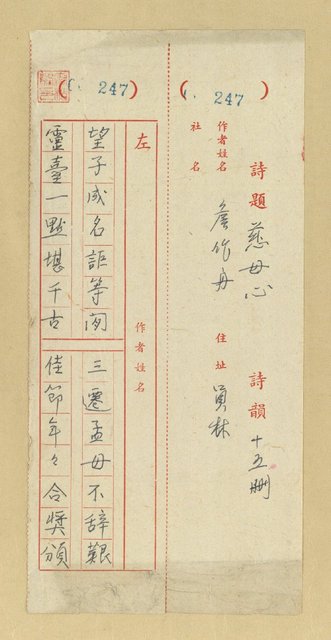 ( 247)
詩題 慈母心 詩韻 十五刪
作者姓名 詹作舟 住址 員林
社名
( 247)
左 作者姓名
望子成名詎等閑 三遷孟母不辭艱
靈臺一點堪千古 佳節年々合獎頒